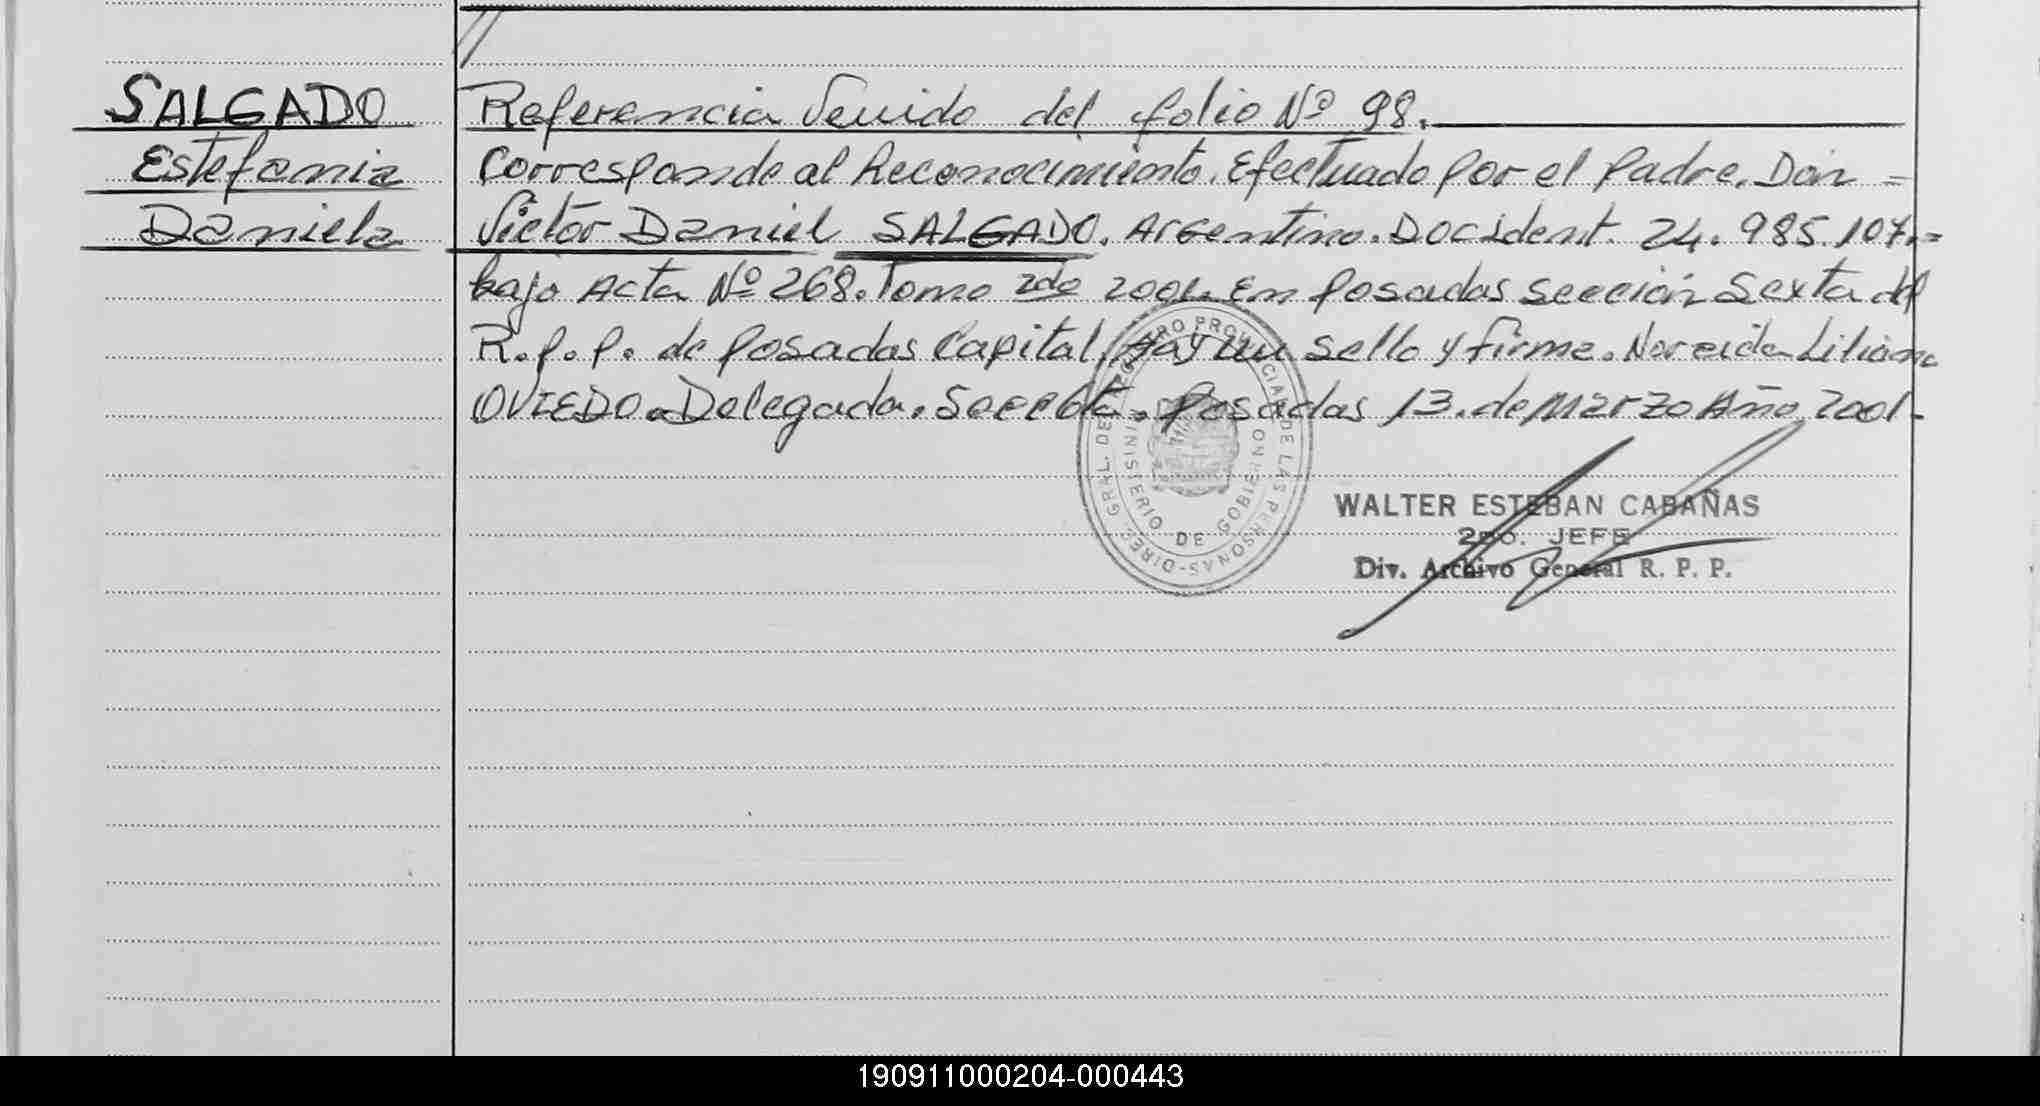 //
SALGADO
Estefania
Daniela
Referencia Venido del folio Nº 98.
Corresponde al Reconocimiento. Efectuado por el padre. Don =
Victor Daniel SALGADO. Argentino. Doc. Ident. 24.985.107.=
bajo Acta Nº 268. Tomo 2do 2001. En posadas sección Sexta del
R.p.p. de posadas Capital. Hay un sello y firma. Noreida Liliana
OVIEDO. Delegada. Secc 6ta. posadas 13. de Marzo Año 2001.
DIREC. GRAL. DEL REGISTRO PROVINCIAL DE LAS PERSONAS
MINISTERIO DE GOBIERNO
WALTER ESTEBAN CABAÑAS
2DO. JEFE
Div. Archivo General R. P. P.
190911000204-000443